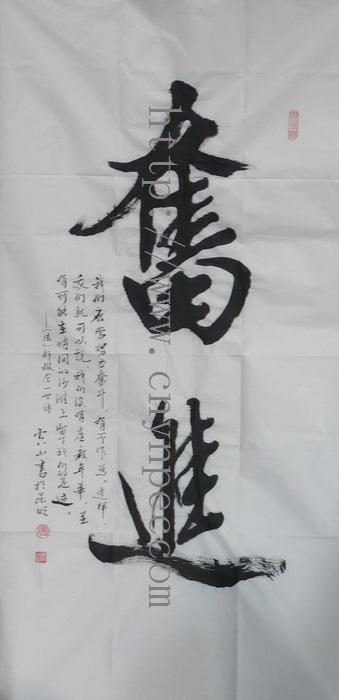 奮進
我们应当努力奋斗，有所作为。这样，
我们就可以说，我们没有虚度年华，并
有可能在时间的沙滩上留下我们的足迹。
——（法）拿破仑一世语
云山書於昆明